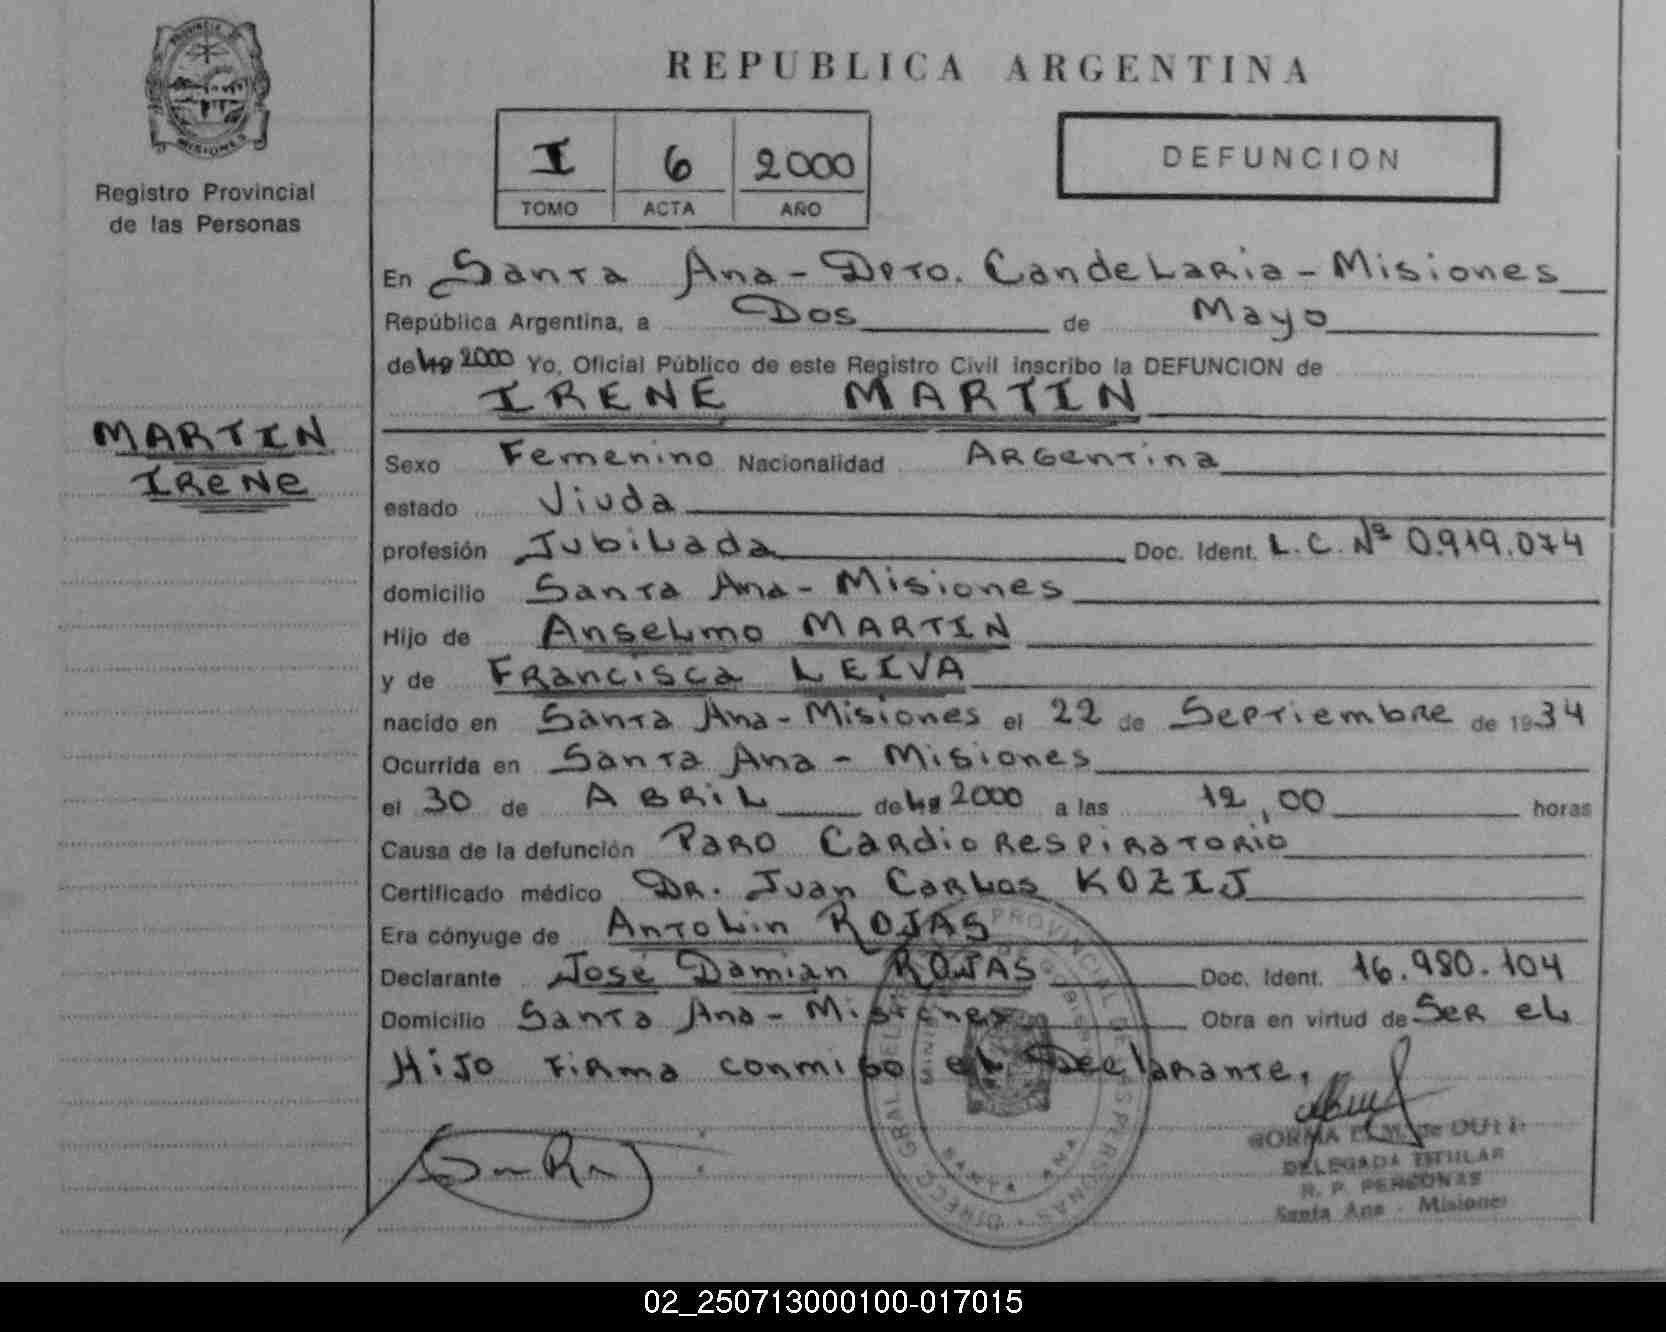 PROVINCIA DE
MISIONES
Registro Provincial
de las Personas
REPUBLICA ARGENTINA
I 6 2000
TOMO ACTA AÑO
DEFUNCION
MARTIN
IRENE
En Santa Ana - Dpto. Candelaria - Misiones
República Argentina, a Dos de Mayo
de 2000 Yo, Oficial Público de este Registro Civil inscribo la DEFUNCION de
IRENE MARTIN
Sexo Femenino Nacionalidad Argentina
estado Viuda
profesión Jubilada Doc. Ident. L.C. Nº 0.919.074
domicilio Santa Ana - Misiones
Hijo de Anselmo MARTIN
y de Francisca LEIVA
nacido en Santa Ana - Misiones el 22 de Septiembre de 1934
Ocurrida en Santa Ana - Misiones
el 30 de ABRIL de 2000 a las 12,00 horas
Causa de la defunción Paro Cardio Respiratorio
Certificado médico Dr. Juan Carlos KOZIJ
Era cónyuge de Antolin ROJAS
Declarante José Damian ROJAS Doc. Ident. 16.980.104
Domicilio Santa Ana - Misiones Obra en virtud de Ser el
Hijo firma conmigo el Declarante.
DIRECC. GRAL. DEL PROVINCIAL DE LAS PERSONAS
SANTA ANA
DELEGADA TITULAR
R. P. PERSONAS
Santa Ana - Misiones
02_250713000100-017015